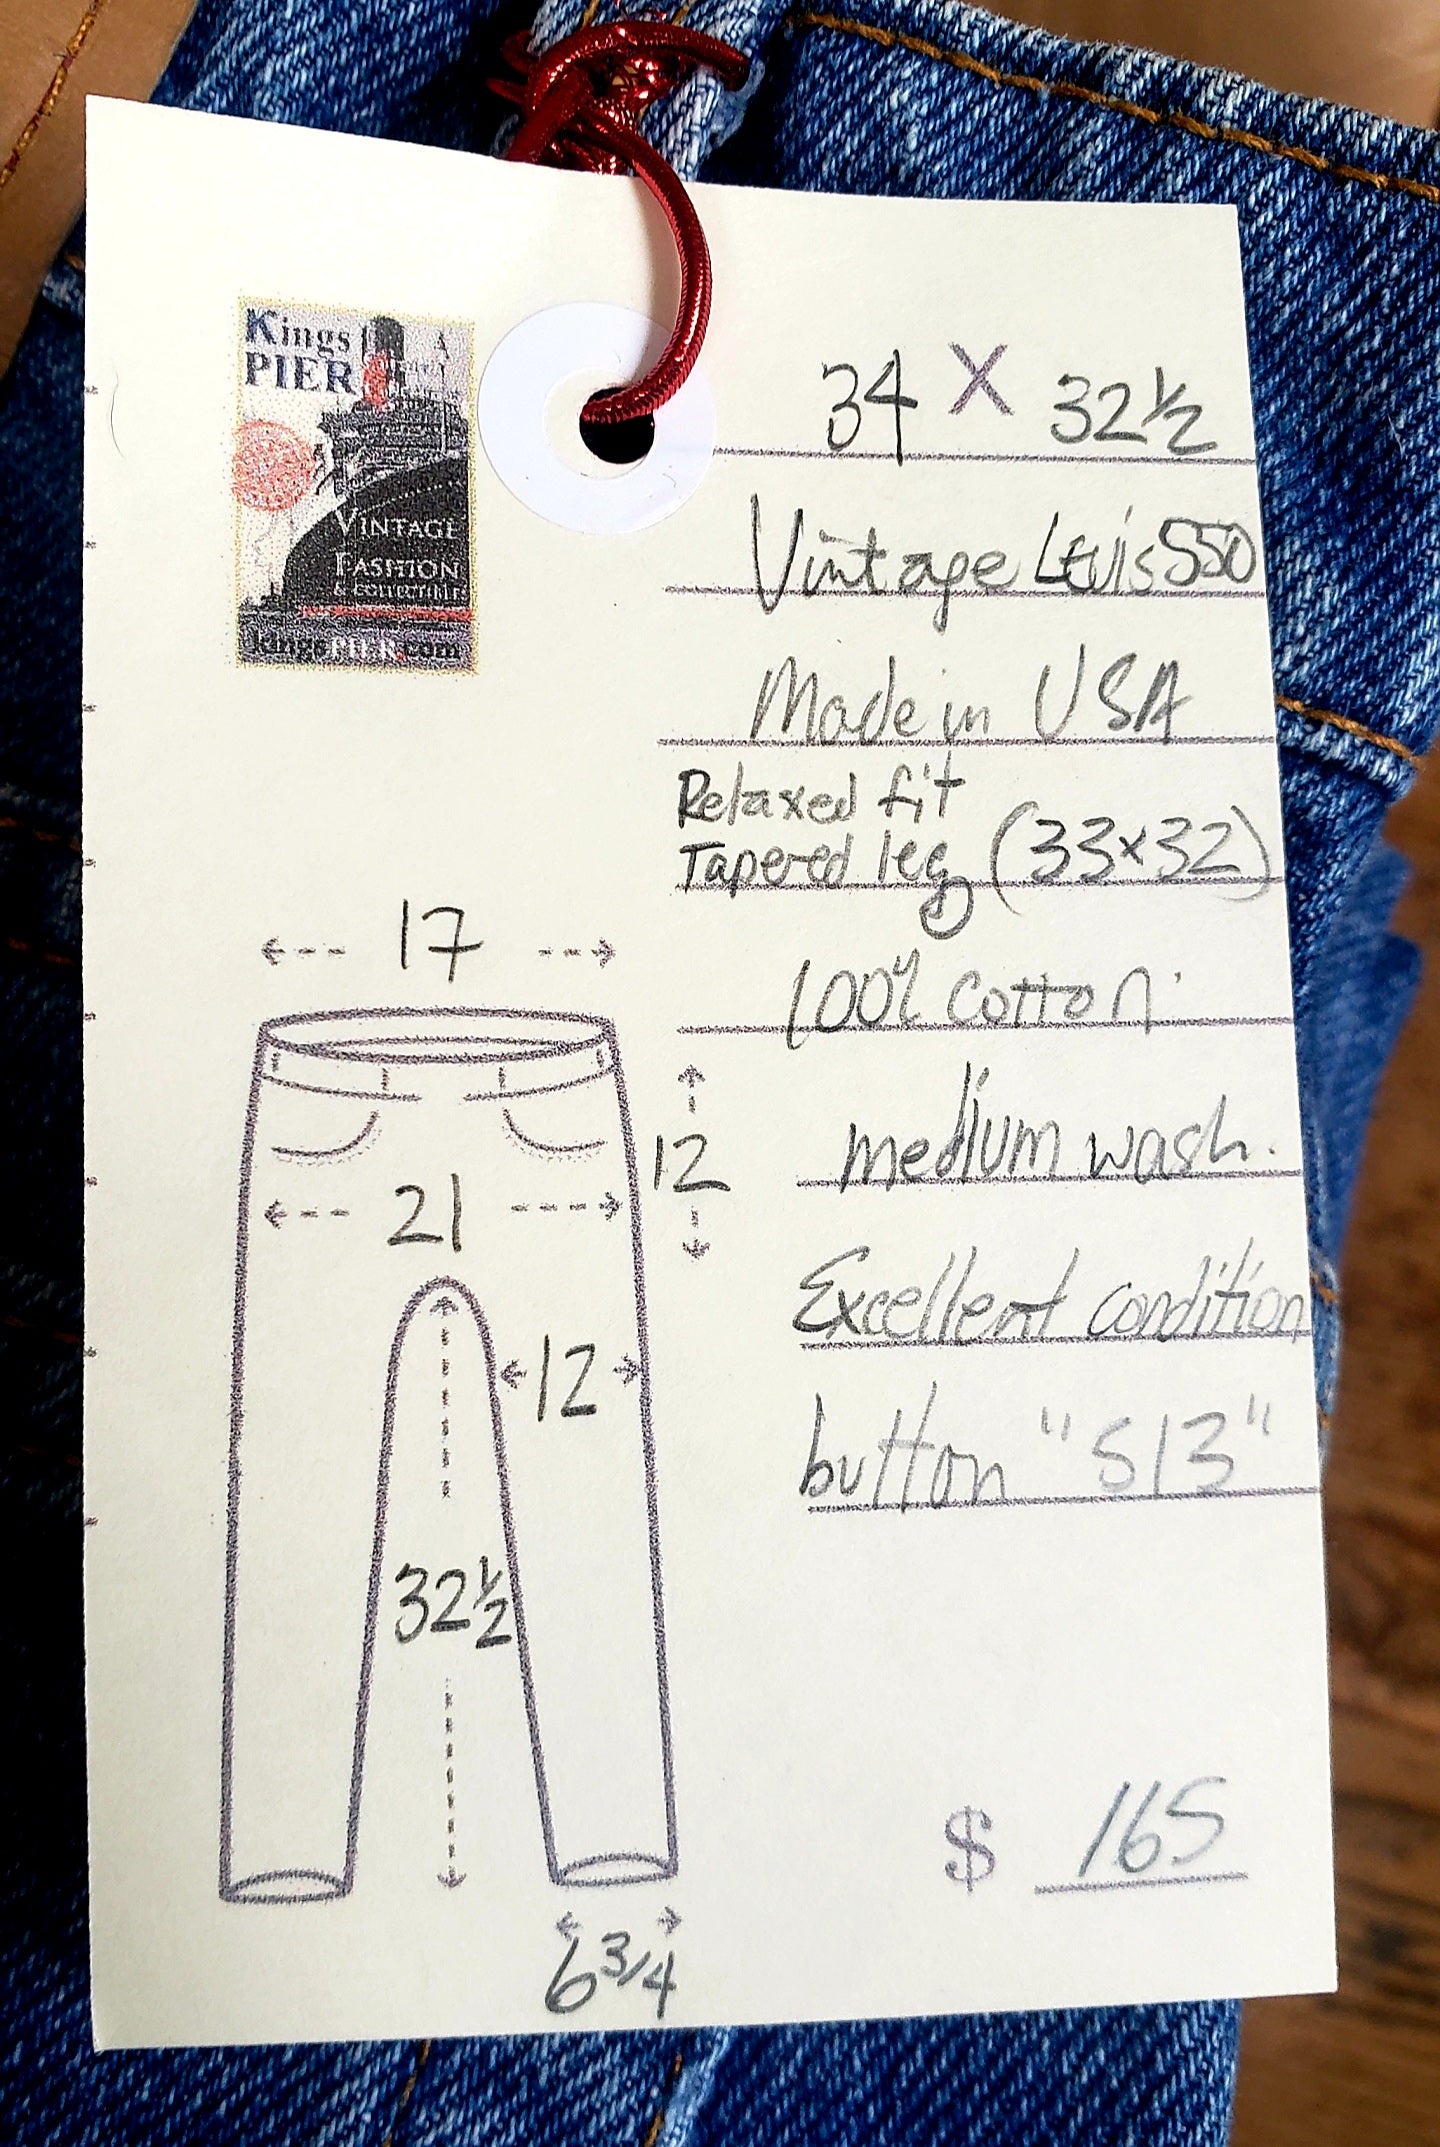 Kings
PIER
VINTAGE
FASHION
& COLLECTIBLES
kingsPIER.com
34 X 32½
Vintage Levis 550
Made in USA
Relaxed fit
Tapered leg (33x32)
100% cotton.
medium wash.
Excellent condition
button "513"
17
12
21
12
32½
6¾
$ 165